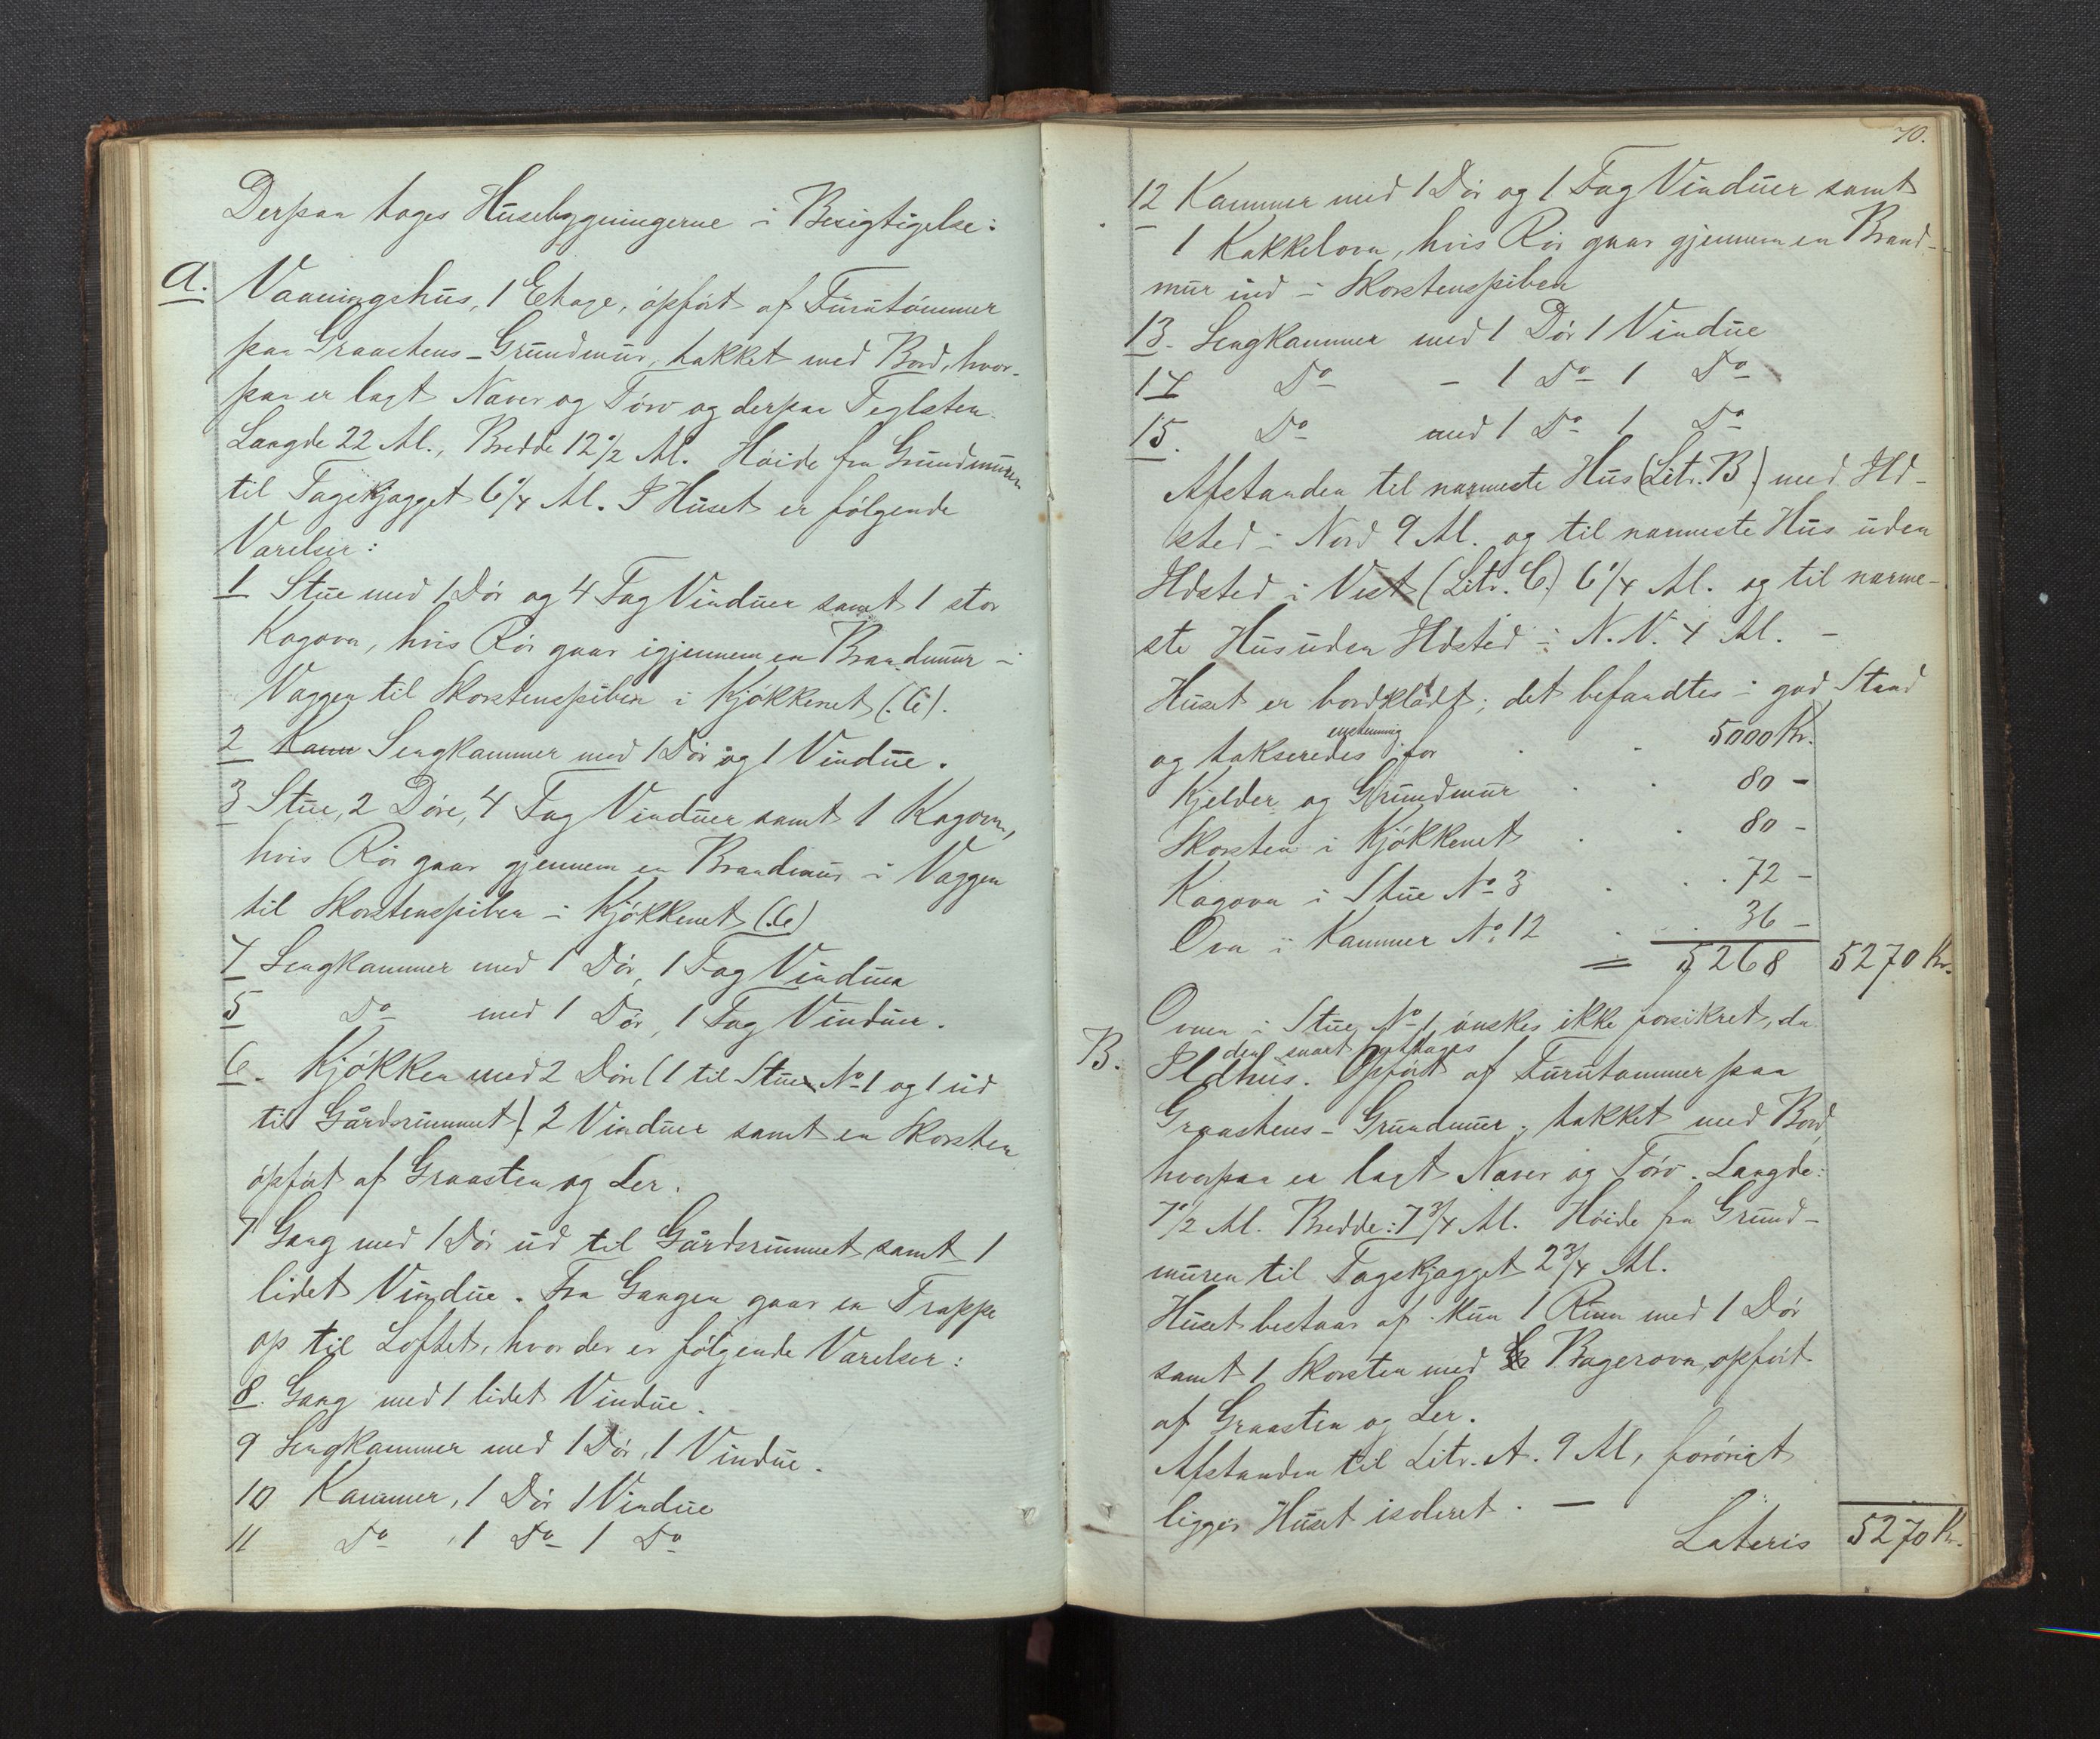 Derpaa toges Husebygningerne i Besigtigelse:
A. Vaaningshus, 1 Etage, opført af Furutømmer
paa Graastens-Grundmur, takket med Bord, hvor-
paa er lagt Næver og Törv og derpaa Teglsten.
Længde 22 Al., Bredde 12 1/2 Al. Høide fra Grundmuren
til Tagskjægget 6 1/4 Al. I Huset er følgende
Værelser:
1 Stue med 1 Dör og 4 Fag Vinduer samt 1 stor
Kogovn, hvis Rör gaar igjennem en Brandmur i
Væggen til Skorstenspiben i Kjøkkenet (:6).
2 Kam Sengkammer med 1 Dör og 1 Vindue.
3 Stue, 2 Döre, 4 Fag Vinduer samt 1 Kogovn,
hvis Rör gaar gjennem en Brandmur i Væggen
til Skorstenspiben i Kjøkkenet (:6)
4 Sengkammer med 1 Dör, 1 Fag Vinduer
5 Do med 1 Dör, 1 Fag Vinduer.
6. Kjøkken med 2 Döre (1 til Stue No 1 og 1 ud
til Gårdsrummet) 2 Vinduer samt en Skorsten
opført af Graasten og Ler.
7 Gang med 1 Dör ud til Gårdsrummet samt 1
lidet Vindue. Fra Gangen gaar en Trappe
op til Loftet, hvor der er følgende Værelser:
8. Gang med 1 lidet Vindue.
9 Sengkammer med 1 Dör, 1 Vindue.
10 Kammer, 1 Dör 1 Vindue
11 Do , 1 Do 1 Do
70.
12 Kammer med 1 Dör og 1 Fag Vinduer samt
1 Kakkelovn, hvis Rör gaar gjennem en Brand-
mur ind i Skorstenspiben
13. Sengkammer med 1 Dör 1 Vindue
14 Do - 1 Do 1 Do
15. Do med 1 Do 1 Do
Afstanden til nærmeste Hus (Litr. B) med Ild-
sted i Nord 9 Al. og til nærmeste Hus uden
Ildsted i Vest (Litr. C.) 6 1/4 Al. og til nærme-
ste Hus uden Ildsted i N.V. 4 Al. -
Huset er bordklædt; det befandtes i god Stand
og takseredes enstemmig for 5000 Kr.
Kjelder og Grundmur 80 -
Skorsten i Kjøkkenet 80 -
Kogovn i Stue No 3 72 -
Ovn i Kammer No 12 36 -
= 5268 5270 Kr.
Ovnen i Stue No 1 ønskes ikke forsikret, da
den snart
B. Ildhus. Opført af Furutømmer paa
Graastens-Grundmur; takket med Bord,
hvorpaa er lagt Næver og Törv. Længde:
7 1/2 Al. Bredde: 7 3/4 Al. Høide fra Grund-
muren til Tagskjægget 2 3/4 Al.
Huset bestaar af kun 1 Rum med 1 Dör
samt 1 Skorsten med Bagerovn, opført
af Graasten og Ler.
Afstanden til Litr. A. 9 Al, forøvrigt
ligger Huset isoleret. -
Lateris 5270 Kr.